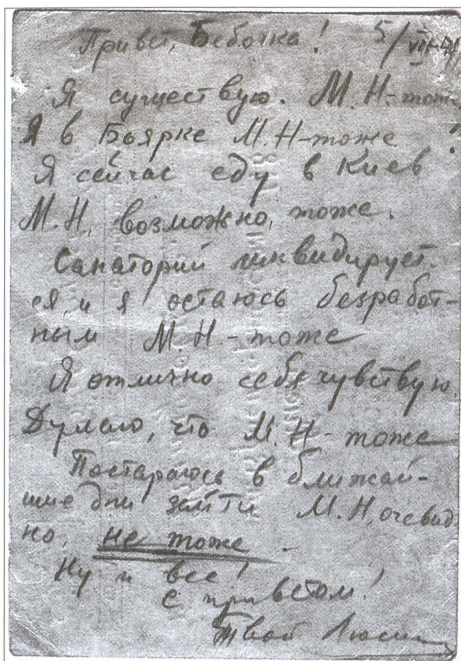 Привет, Бебочка! 5/VII-41
Я существую. М.Н-тоже
Я в Боярке М.Н-тоже!
Я сейчас еду в Киев
М.Н, возможно, тоже.
Санаторий ликвидирует
ся, и я остаюсь безработ-
ным М.Н-тоже
Я отлично себя чувствую
Думаю, что М.Н-тоже
Постараюсь в ближай-
шие дни зайти М.Н, очевид
но, не тоже.
Ну и все!
С приветом!
Твой Люсик